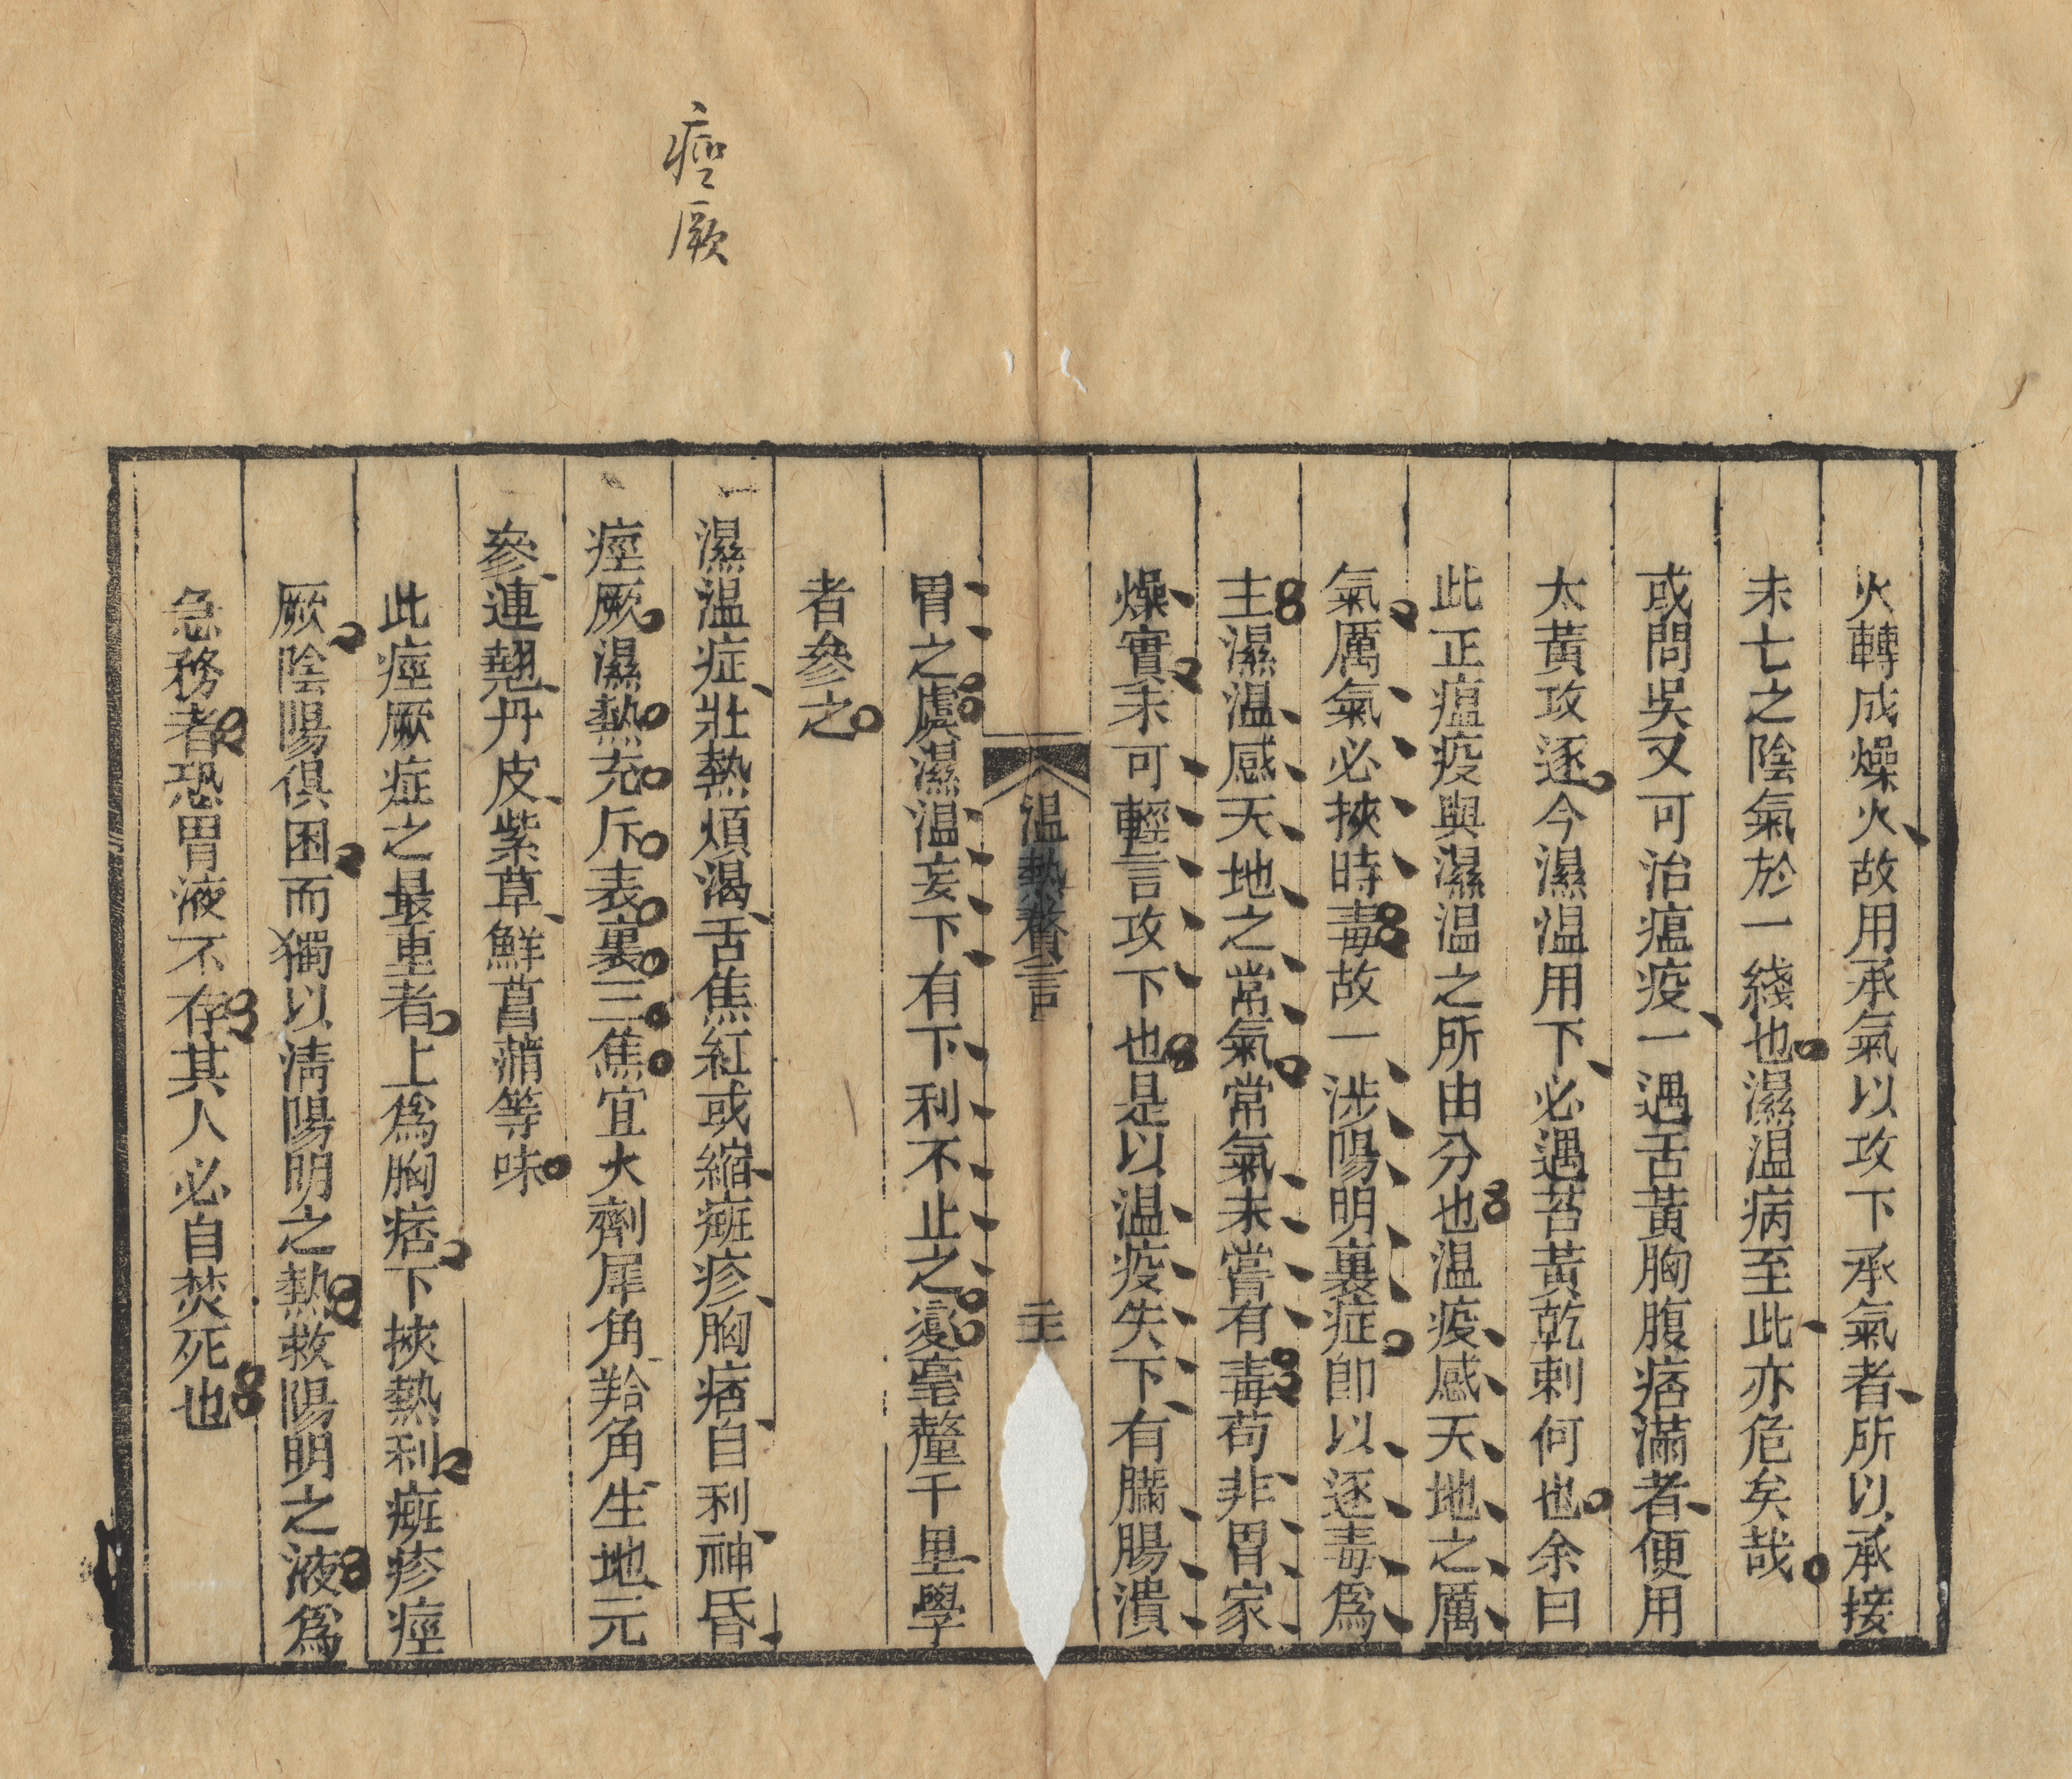 痙厥
火轉成燥火故用承氣以攻下承氣者所以承接
未亡之陰氣於一綫也濕温病至此亦危矣哉
或問吳又可治瘟疫一遇舌黃胸腹痞滿者便用
大黃攻逐今濕温用下必遇苔黃乾刺何也余曰
此正瘟疫與濕温之所由分也温疫感天地之厲
氣厲氣必挾時毒故一涉陽明裏症卽以逐毒爲
主濕温感天地之常氣常氣未嘗有毒苟非胃家
燥實未可輕言攻下也是以温疫失下有臟腸潰
胃之虞濕温妄下有下利不止之憂毫釐千里學
者參之
温熱贅言
一濕温症壯熱煩渴舌焦紅或縮癍疹胸痞自利神昏
痙厥濕熱充斥表裏三焦宜大劑犀角羚角生地元
參連翹丹皮紫草鮮菖蒲等味
此痙厥症之最重者上爲胸痞下挾熱利癍疹痙
厥陰陽俱困而獨以淸陽明之熱救陽明之液爲
急務者恐胃液不存其人必自焚死也